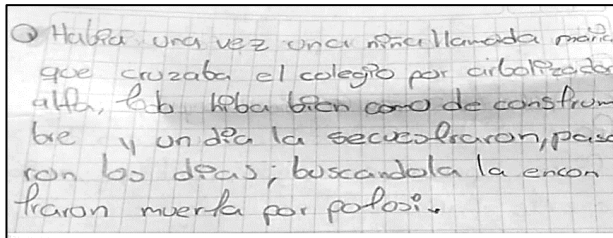 Habia una vez una niña llamada mari
que cruzaba el colegio por arbolizador
alfa, hiba bien como de construm
bre y un dia la secuestraron, pasa
ron los dias; buscandola la encon
traron muerta por potosi.